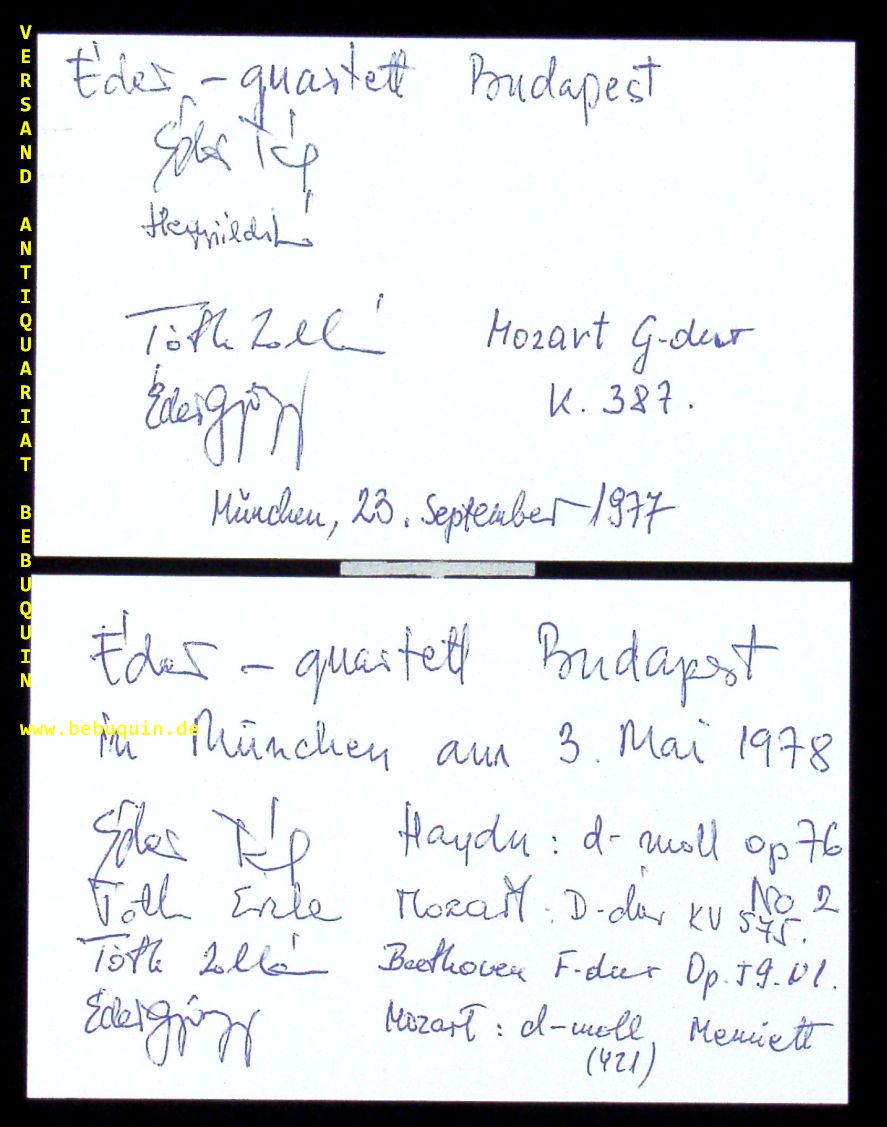 VERSAND ANTIQUARIAT BEBUQUIN
www.bebuquin.de
Éder - quartett Budapest
Éder Pál
Tóth Zoltán Mozart G-dur
Éder György K. 387.
München, 23. September 1977
Éder - quartett Budapest
in München am 3. Mai 1978
Éder Pál Haydn : d-moll op 76
No 2
Tóth Erika Mozart : D-dúr KV 575.
Tóth Zoltán Beethoven F-dur Op. 59. N1.
Éder György Mozart : d-moll, Menuett
(421)